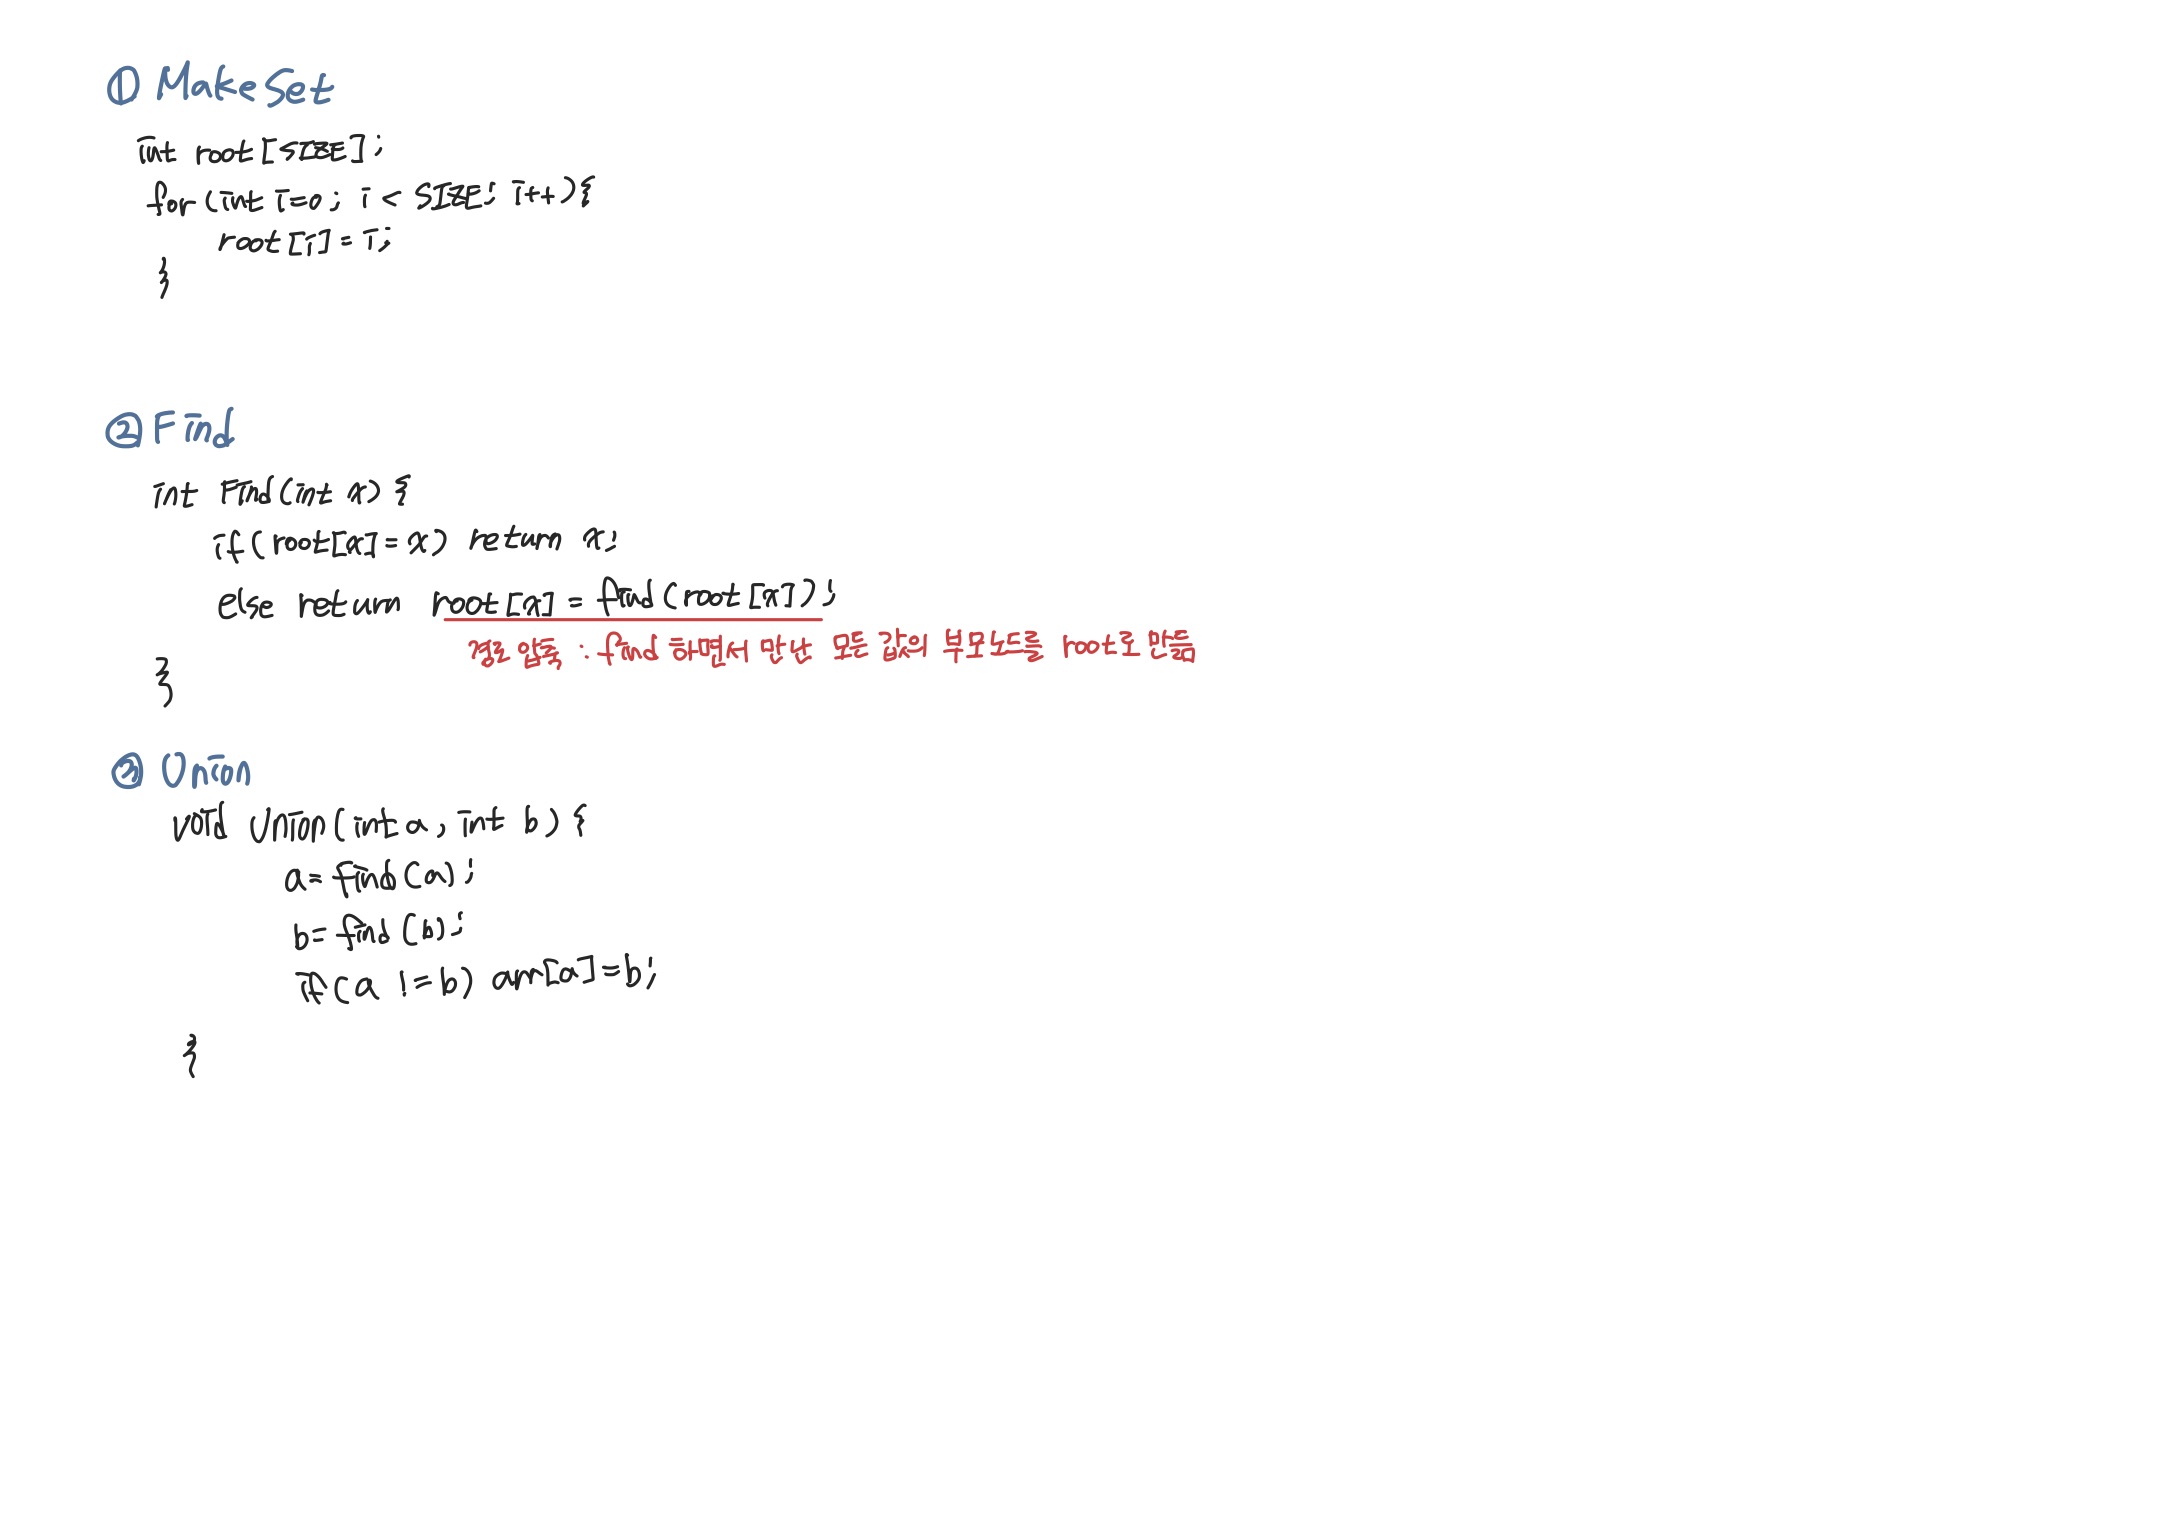 ① Make Set
int root[SIZE];
for(int i=0; i < SIZE; i++){
root[i] = i;
}
② Find
int Find(int x) {
if(root[x] = x) return x;
else return root[x] = find(root[x]);
경로 압축 : find 하면서 만난 모든 값의 부모노드를 root로 만듦
}
③ Union
void Union(int a, int b) {
a= find(a);
b= find(b);
if(a != b) arr[a]=b;
}